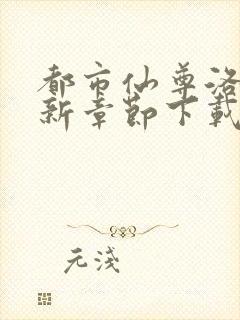 都市仙尊洛
新章節下載
元淺